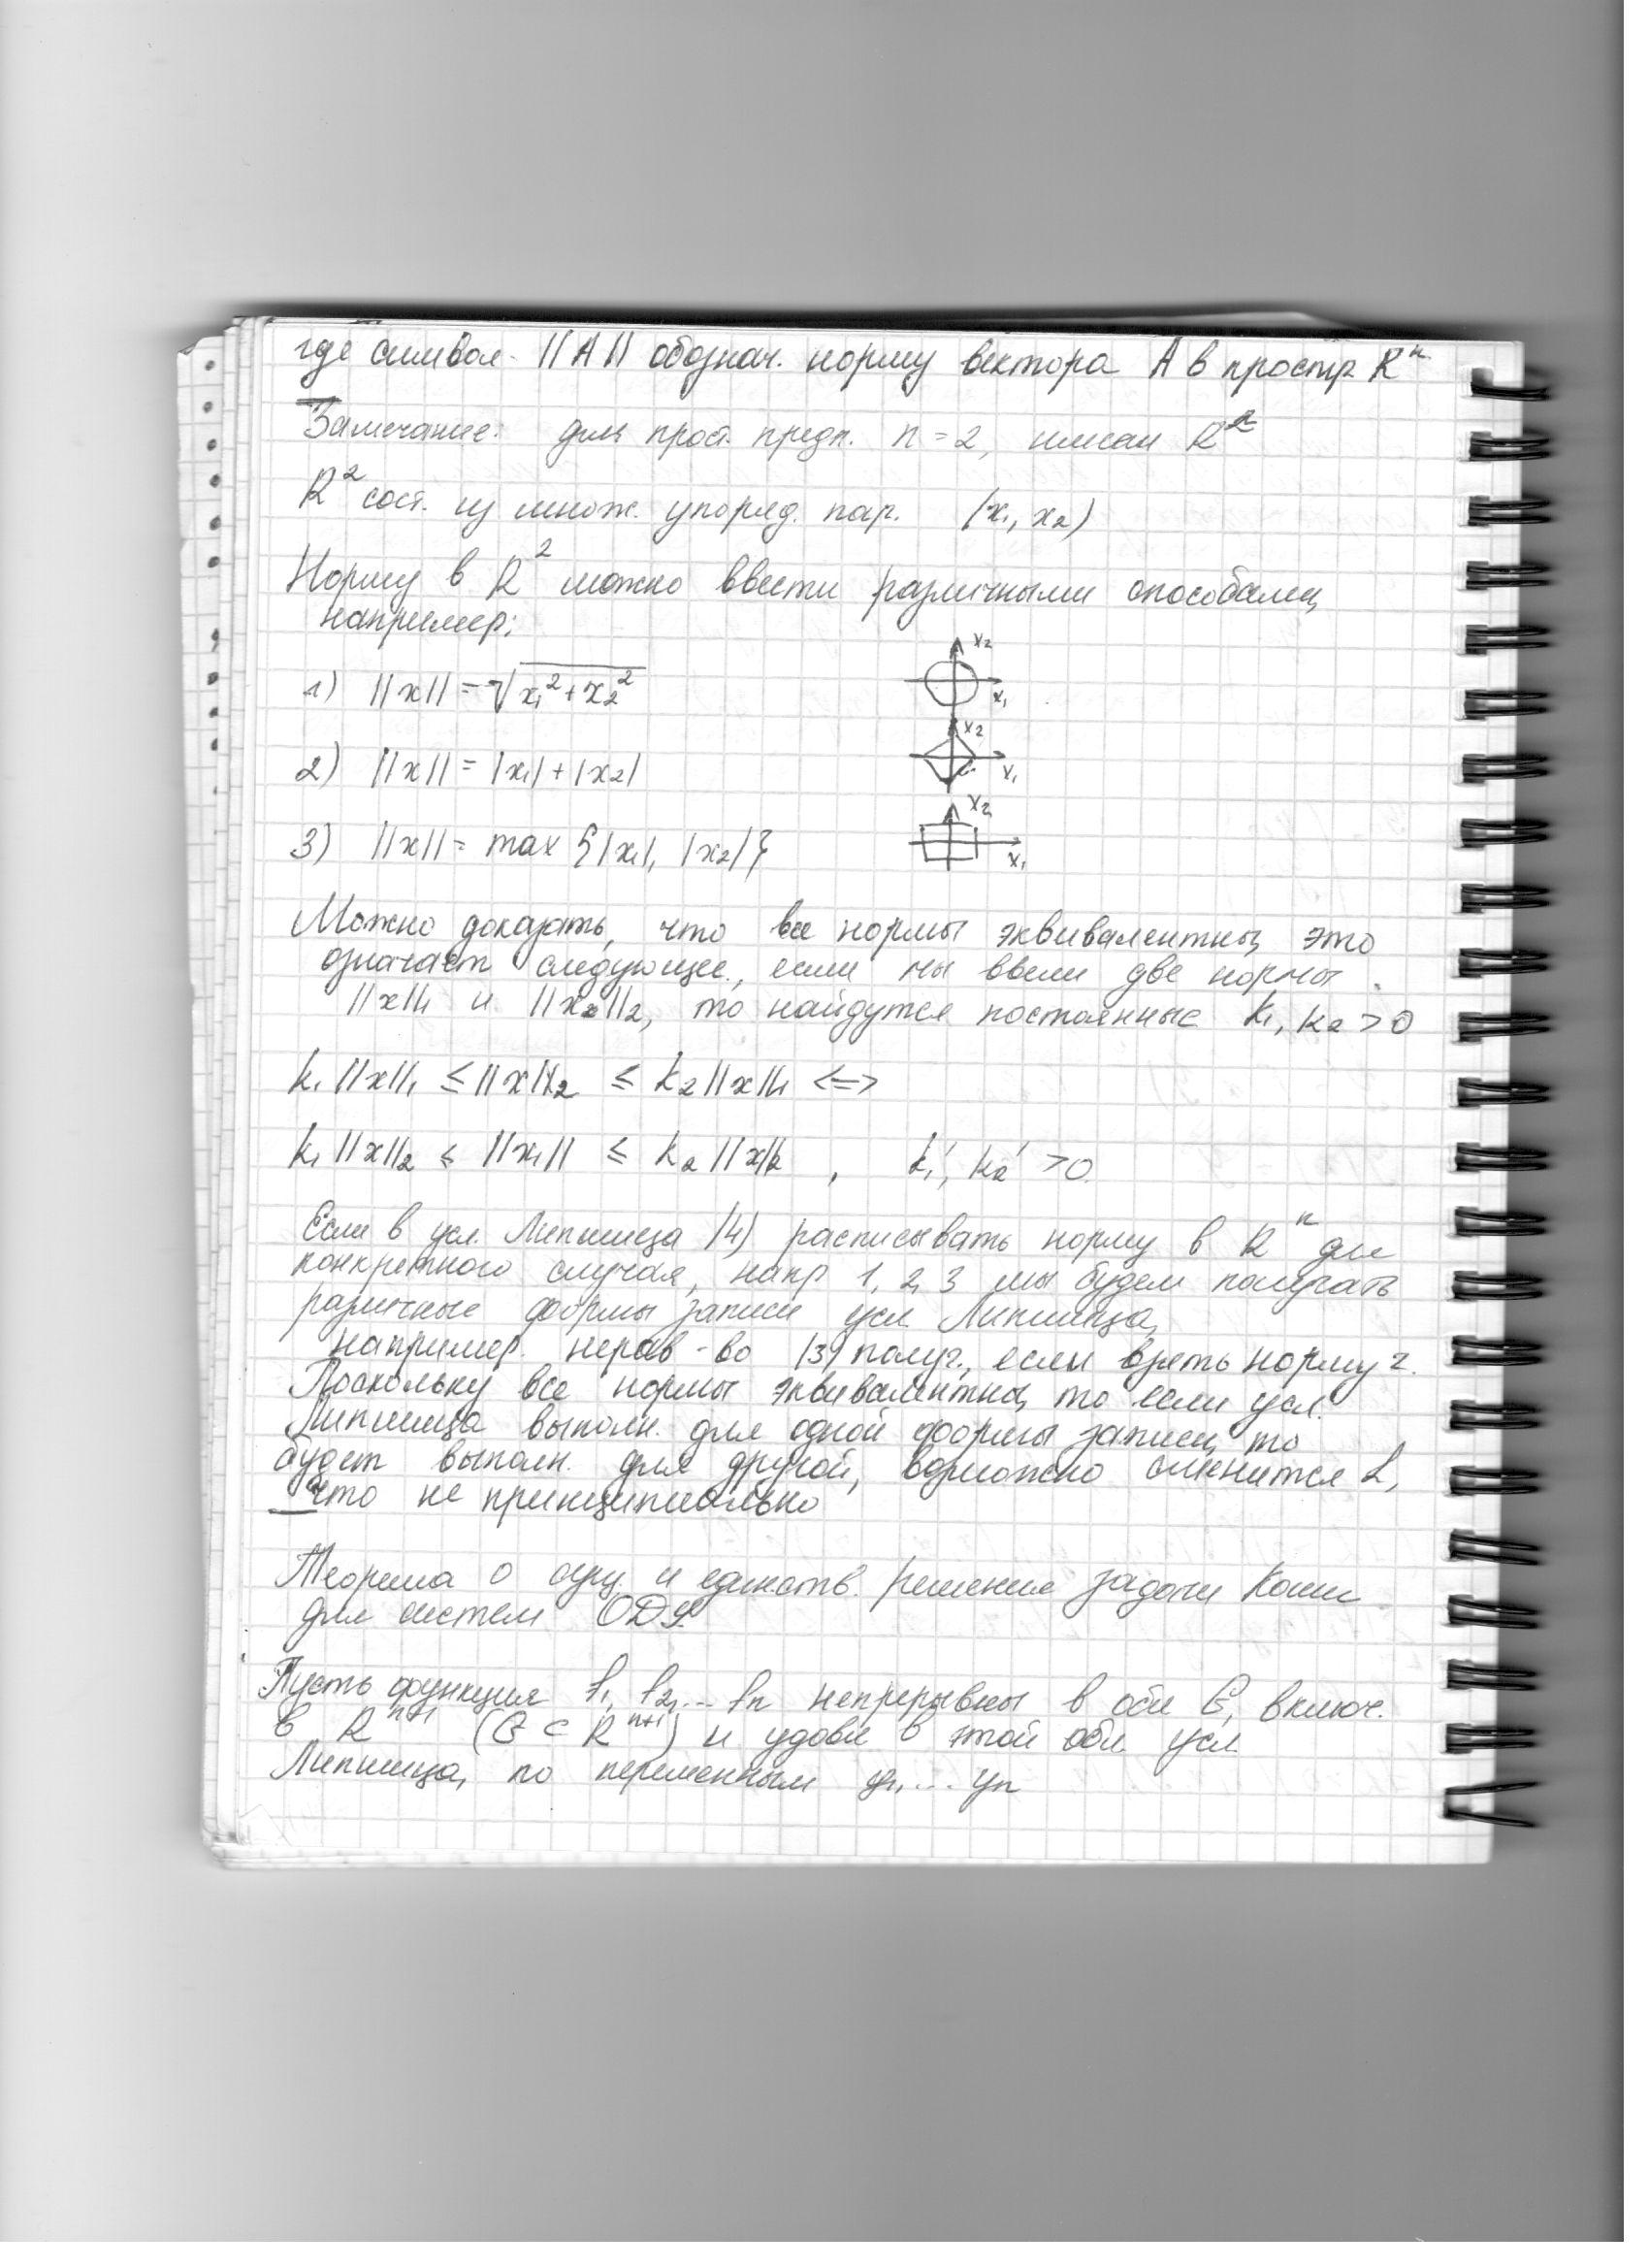 где символ ||A|| обознач. норму вектора A в простр R^n
Замечание: для прост. предп. n = 2, имеем R^2
R^2 сост. из множ. упоряд. пар. (x₁, x₂)
Норму в R^2 можно ввести различными способами,
например:
1) ||x|| = √x₁²+x₂²
x₂
x₁
2) ||x|| = |x₁|+|x₂|
x₂
x₁
3) ||x|| = max {|x₁|, |x₂|}
x₂
x₁
Можно доказать, что все нормы эквивалентны, это
означает следующее, если мы ввели две нормы
||x||₁ и ||x||₂, то найдутся постоянные k₁, k₂ > 0
k₁ ||x||₁ ≤ ||x||₂ ≤ k₂ ||x||₁ <=>
k₁ ||x||₂ ≤ ||x₁|| ≤ k₂ ||x||₂ , k₁', k₂' > 0
Если в усл. Липшица (4) расписывать норму в R^n для
конкретного случая, напр 1, 2, 3 мы будем получать
различные формы записи усл. Липшица,
например. нерав-во (3) получ., если взять норму 2.
Поскольку все нормы эквивалентны, то если усл.
Липшица выполн. для одной формы записи, то
будет выполн. для другой, возможно сменится L,
что не принципиально
Теорема о сущ. и единств. решения задачи Коши
для систем ОДУ.
Пусть функция f₁, f₂,... fn непрерывны в обл G, включ.
в R^n+1 (G ⊂ R^n+1) и удовл в этой обл. усл
Липшица, по переменным y₁,... yn